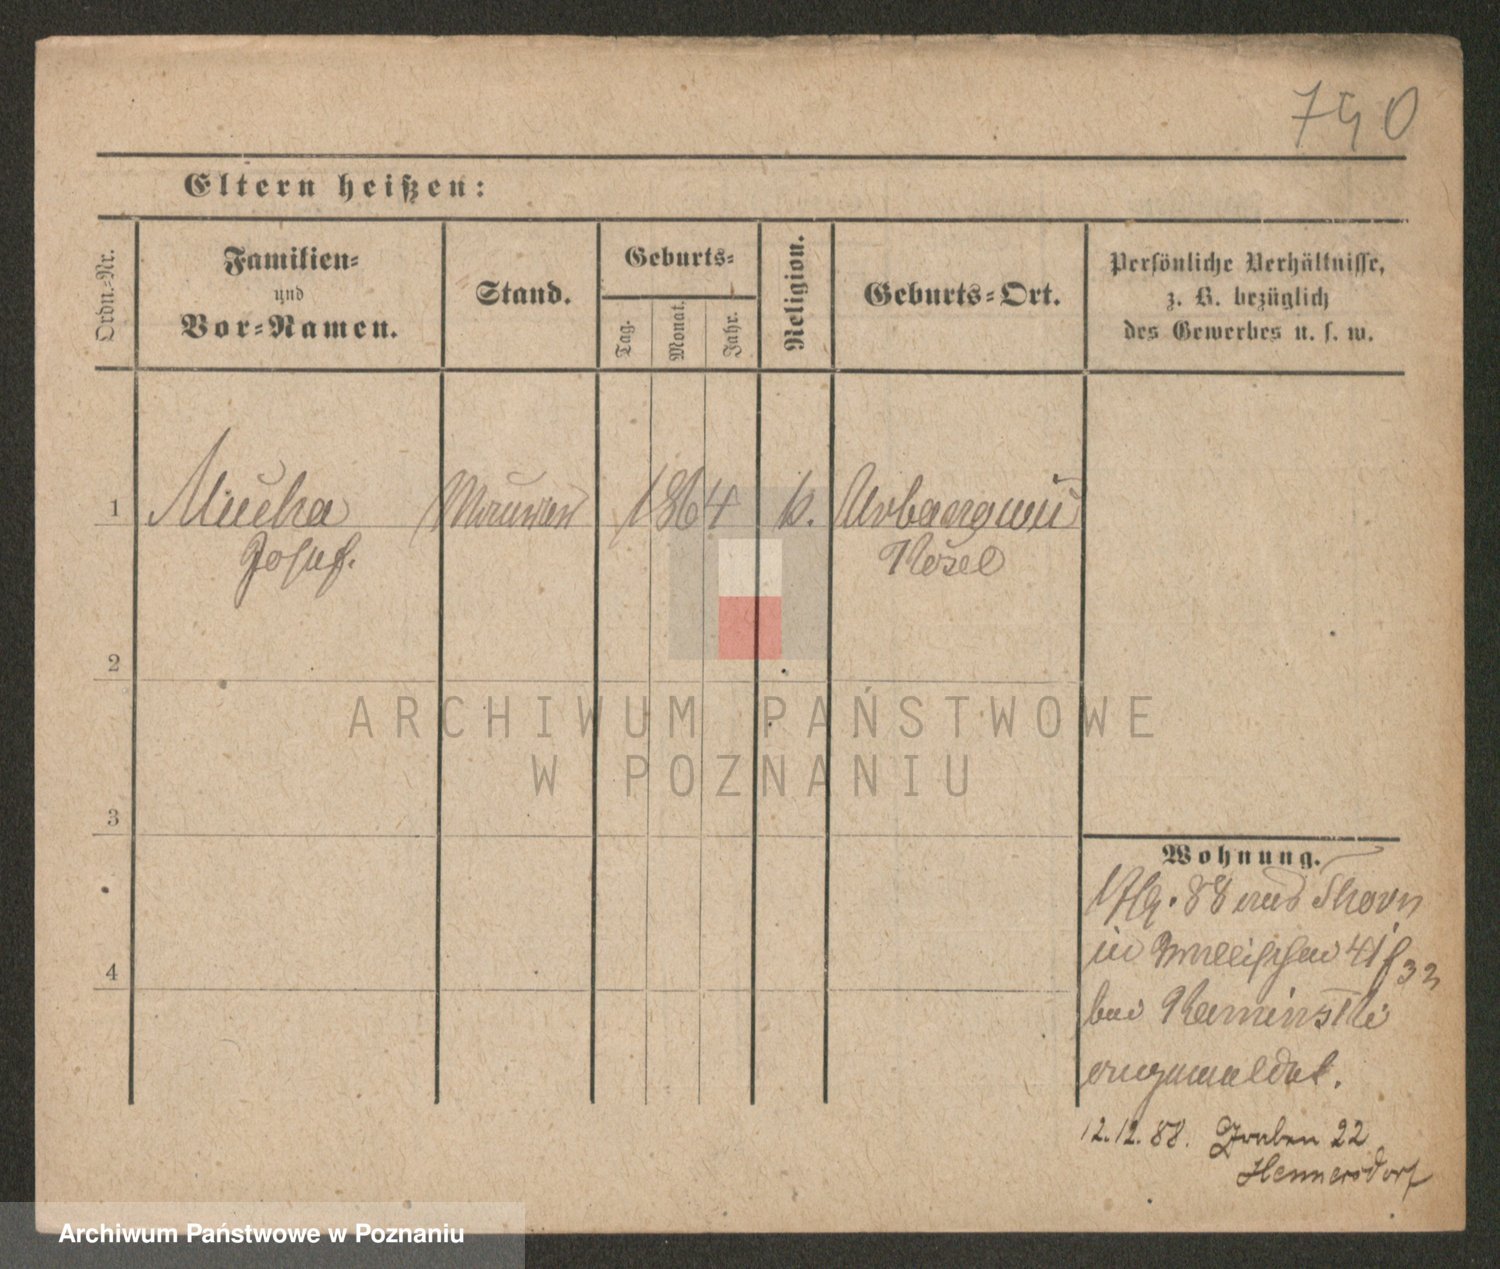 790
Eltern heißen:
Ordn.-Nr.
Familien-
und
Vor-Namen.
Stand.
Geburts-
Tag.
Monat.
Jahr.
Religion.
Geburts-Ort.
Persönliche Verhältnisse,
z. B. bezüglich
des Gewerbes u. s. w.
1 Mucha Maurer 1864 k.
Josef. Kosel
2
3
4
Wohnung.
88 aus Thorn
in Wallischei 41 f
bei Kaminski
angemeldet.
12.12.88. Graben 22
Hennersdorf
ARCHIWUM PAŃSTWOWE
W POZNANIU
Archiwum Państwowe w Poznaniu